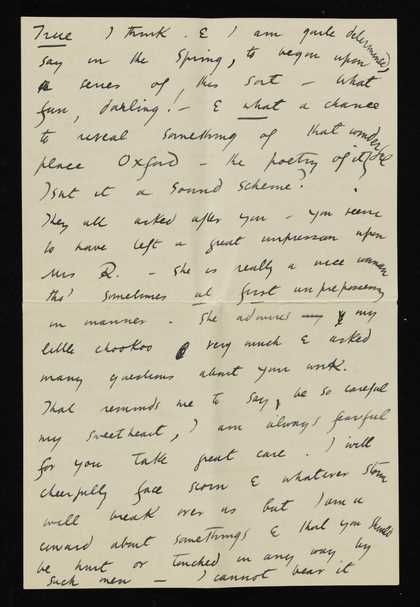 True I think. & I am quite determined,
say in the Spring, to begin upon
a series of this sort – what
fun, darling! – & what a chance
to reveal something of that wonderful
place Oxford – the poetry of it all
Isnt it a sound scheme?
They all asked after you – you seem
to have left a great impression upon
Mrs R. – She is really a nice woman
tho' sometimes at first unprepossessing
in manner. She admires my
little chookoo very much & asked
many questions about your work.
That reminds me to say, be so careful
my sweetheart, I am always fearful
for you take great care. I will
cheerfully face scorn & whatever storm
will break over us but I am a
coward about somethings & that you should
be hurt or touched in any way by
such men – I cannot bear it